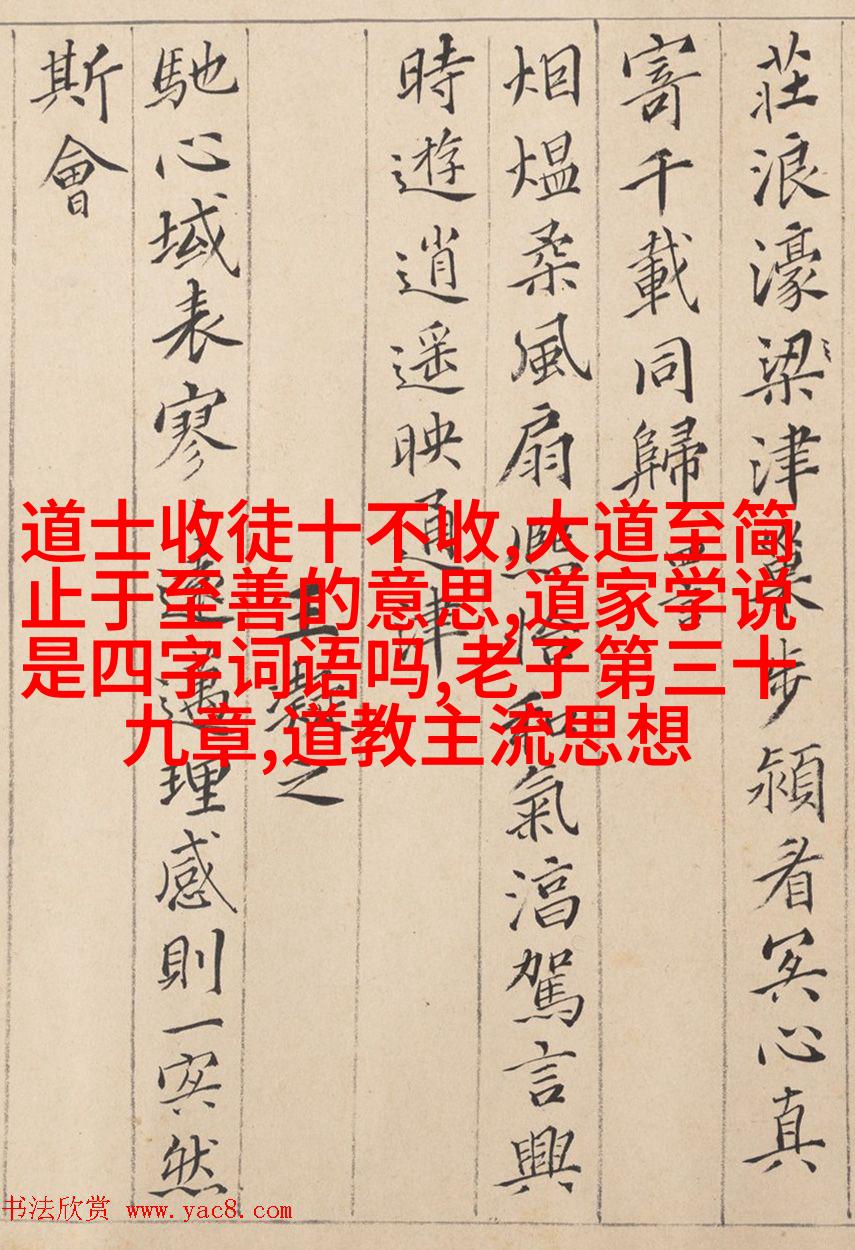 莊浪濠梁津巢步潁看冥心真
寄千載同歸
烟煴柔風扇熙怡和氣淯駕言興
時遊逍遥映通津
王蘊之
馳心域表寥遼邁理感則一冥然
斯會
道士收徒十不收,大道至简
止于至善的意思,道家学说
是四字词语吗,老子第三十
九章,道教主流思想
书法欣赏 www.yac8.com